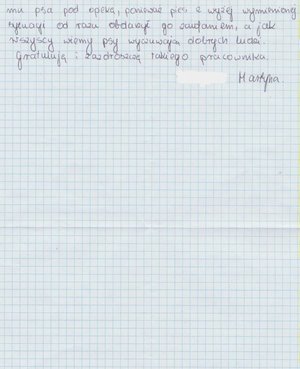 mu psa pod opiekę, ponieważ pies z wyżej wymienionej
sytuacji od razu obdarzył go zaufaniem, a jak
wszyscy wiemy psy wyczuwają dobrych ludzi.
Gratuluję i zazdroszczę takiego pracownika.
Martyna.